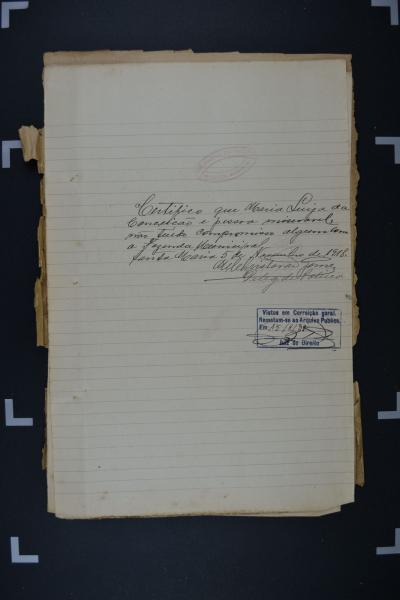 Certifico que Maria Luiza da
Conceição é pessoa miseravel,
não tendo compromisso algum com
a Fazenda Municipal.
Santa Maria 5 de Novembro de 1918.
Vistos em Correição geral.
Remetam-se ao Arquivo Publico.
Em 15/
Juiz de Direito